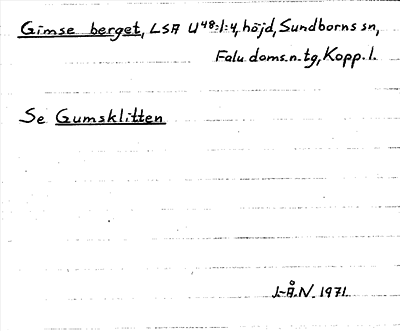 Gimse berget, LSA U48:1:4, höjd, Sundborns sn,
Falu doms.n.tg, Kopp. l.
Se Gumsklitten
J-Å.N. 1971.